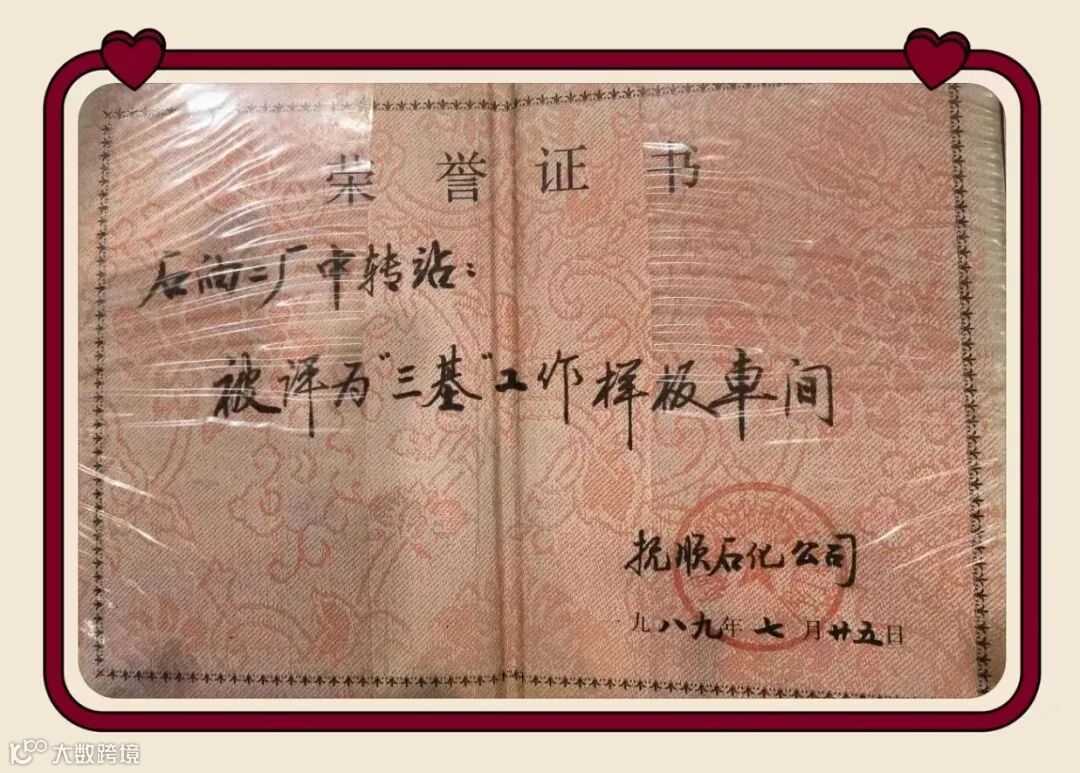 荣誉证书
石油二厂中转站：
被评为"三基"工作样板车间
抚顺石化公司
一九八九年七月廿五日
大数跨境